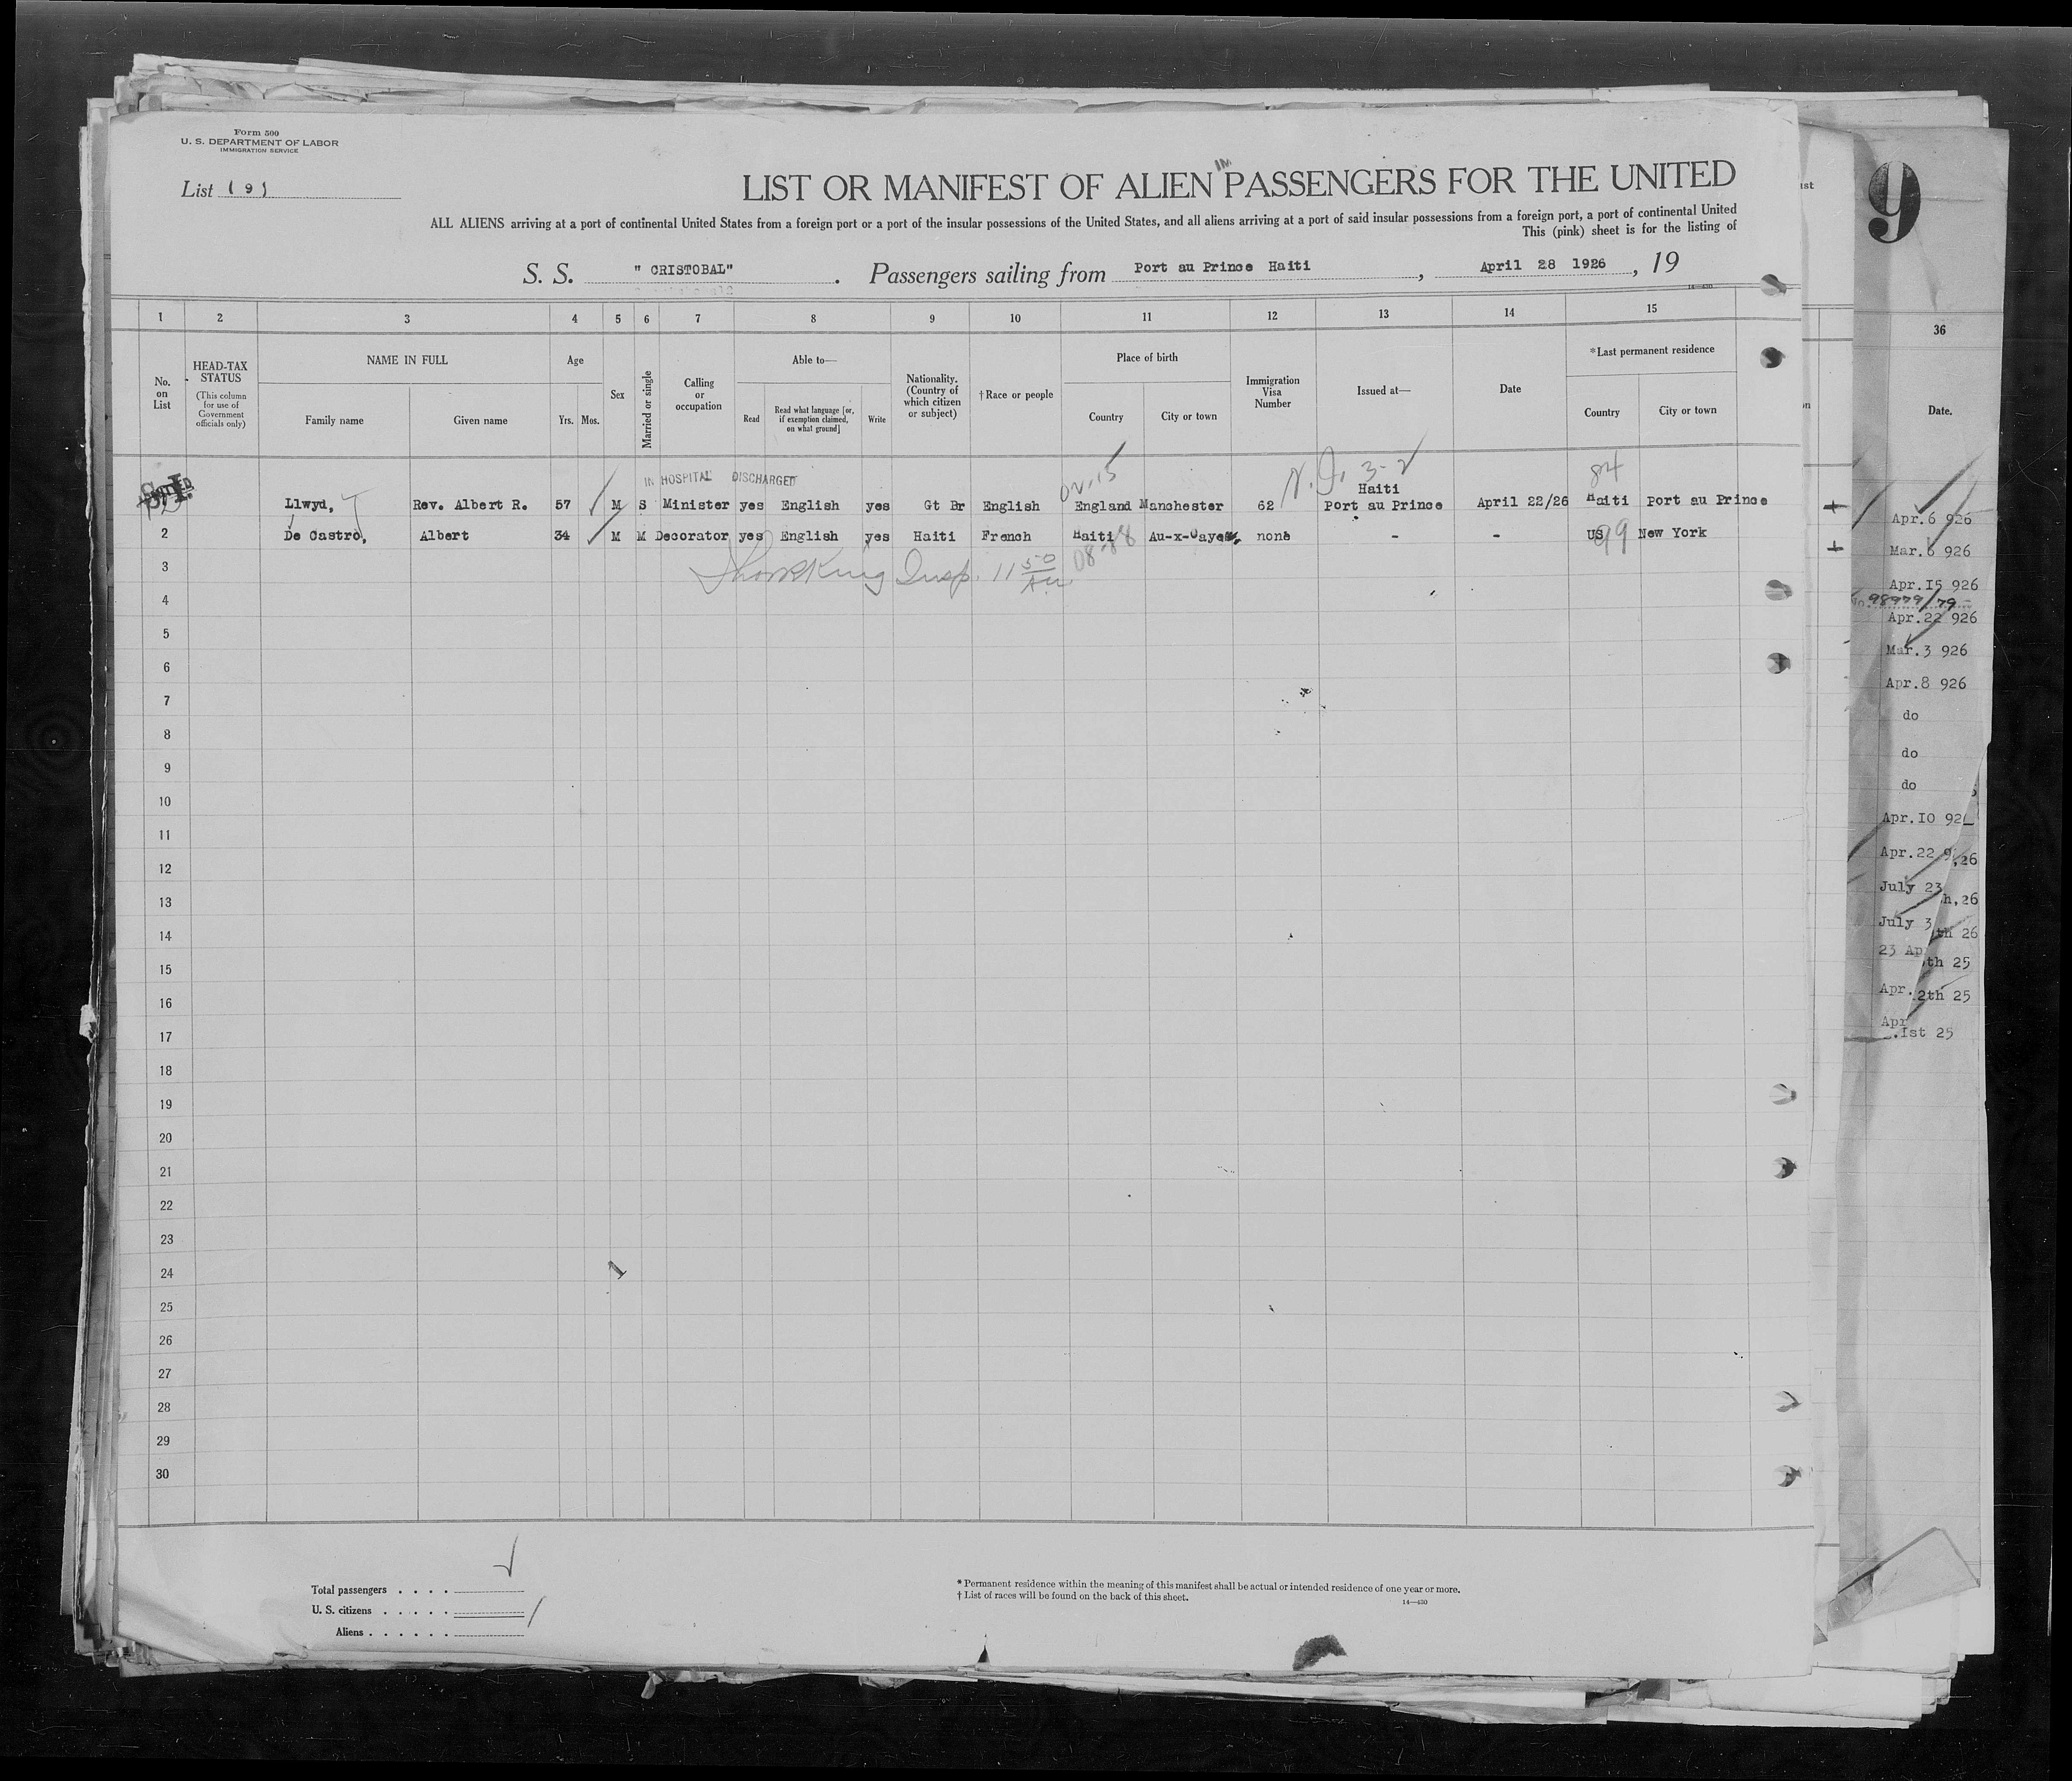 Form 500
U. S. DEPARTMENT OF LABOR
IMMIGRATION SERVICE
List (9)
IM
LIST OR MANIFEST OF ALIEN PASSENGERS FOR THE UNITED
ALL ALIENS arriving at a port of continental United States from a foreign port or a port of the insular possessions of the United States, and all aliens arriving at a port of said insular possessions from a foreign port, a port of continental United
This (pink) sheet is for the listing of
S. S. " CRISTOBAL" . Passengers sailing from Port au Prince Haiti , April 28 1926 , 19
14—430
1 2 3 4 5 6 7 8 9 10 11 12 13 14 15
No. on List
HEAD-TAX STATUS
(This column for use of Government officials only)
NAME IN FULL
Family name Given name
Age
Yrs. Mos.
Sex
Married or single
Calling or occupation
Able to—
Read
Read what language [or, if exemption claimed, on what ground]
Write
Nationality. (Country of which citizen or subject)
†Race or people
Place of birth
Country City or town
Immigration Visa Number
Issued at—
Date
*Last permanent residence
Country City or town
IN HOSPITAL DISCHARGED
02-15
3-2
84
Haiti
Llwyd, Rev. Albert R. 57 M S Minister yes English yes Gt Br English England Manchester 62 Port au Prince April 22/26 Haiti Port au Prince
2 De Castro, Albert 34 M M Decorator yes English yes Haiti French Haiti Au-x-Cayes, none - - US New York
99
08-88
3 Insp. 11 50 AM
4
5
6
7
8
9
10
11
12
13
14
15
16
17
18
19
20
21
22
23
24
25
26
27
28
29
30
Total passengers . . . .
U. S. citizens . . . . .
Aliens . . . . . .
* Permanent residence within the meaning of this manifest shall be actual or intended residence of one year or more.
† List of races will be found on the back of this sheet.
14—430
9
36
Date.
Apr.6 926
Mar.6 926
Apr.I5 926
98979/79
Apr.22 926
Mar.3 926
Apr.8 926
do
do
do
Apr.IO 92
Apr.22 9
,26
July 23
h,26
July 3
th 26
23 Ap
th 25
Apr.
2th 25
Apr
.Ist 25